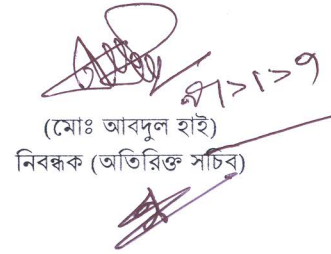 (মোঃ আবদুল হাই)
নিবন্ধক (অতিরিক্ত সচিব)